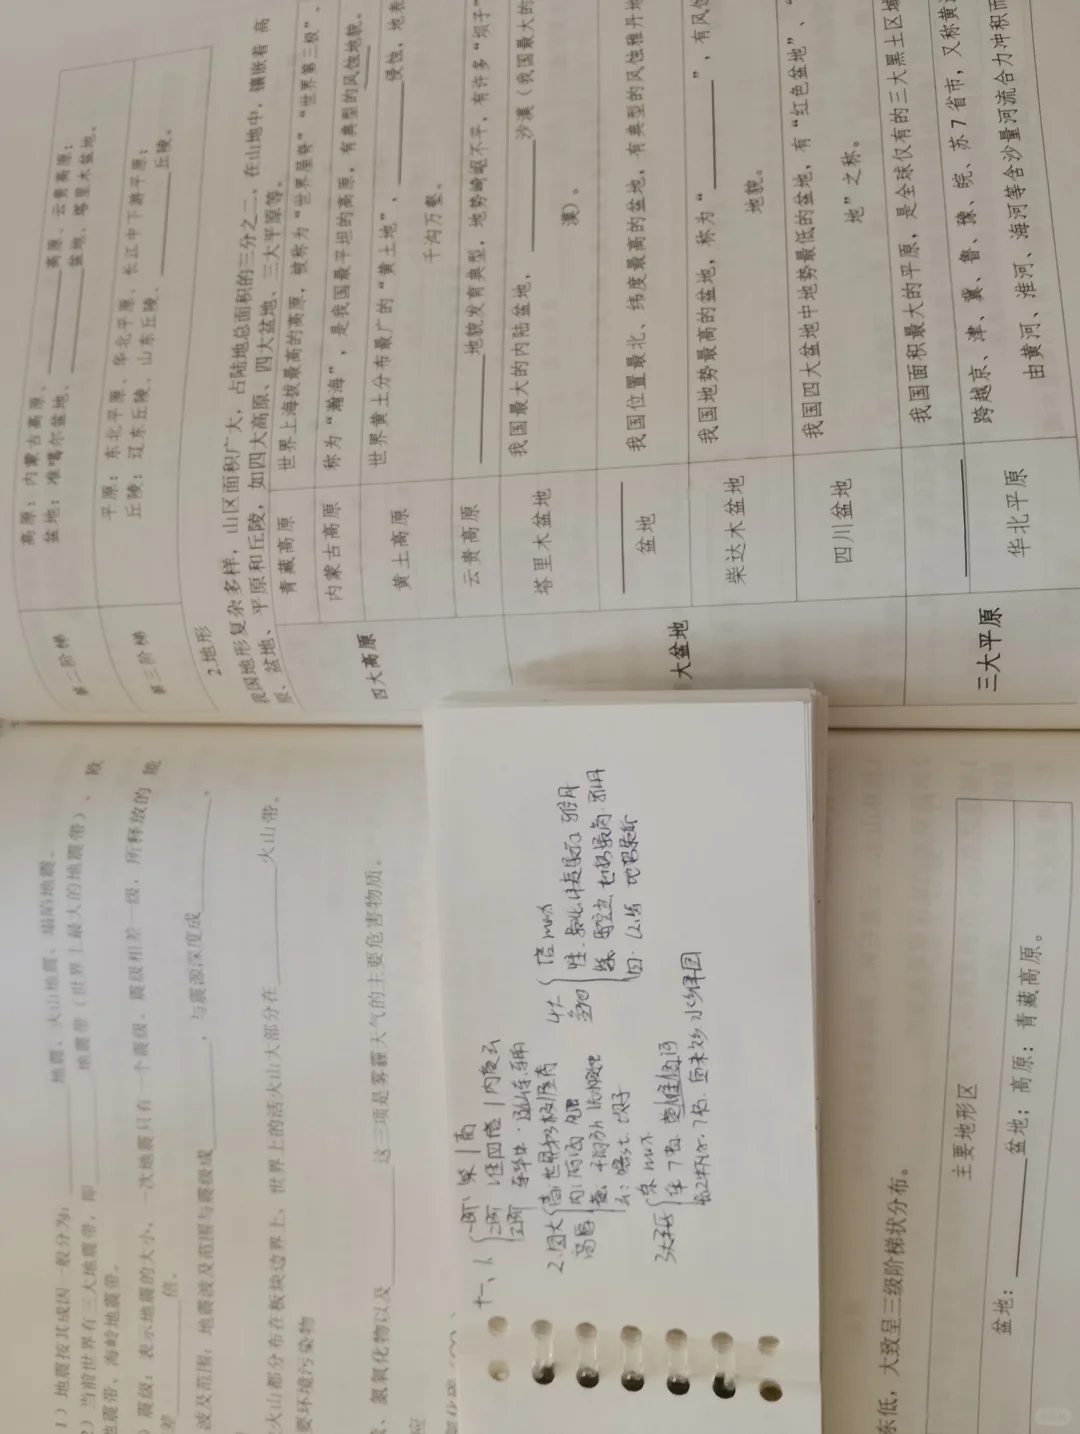 1）地震按其成因一般分为：________地震、火山地震、塌陷地震。
2）当前世界有三大地震带，即________地震带（世界上最大的地震带）、欧
地震带、海岭地震带。
）震级：表示地震的大小，一次地震只有一个震级，震级相差一级，所释放的能
差________倍。
波及范围：地震波及范围与震级成________，与震源深度成________。
火山都分布在板块边界上，世界上的活火山大部分在________火山带。
要环境污染物
、氮氧化物以及________这三项是雾霾天气的主要危害物质。
应
东低，大致呈三级阶梯状分布。
主要地形区
盆地：________盆地；高原：青藏高原。
第二阶梯
高原：内蒙古高原、________高原、云贵高原；
盆地：准噶尔盆地、________盆地、塔里木盆地。
第三阶梯
平原：东北平原、华北平原、长江中下游平原；
丘陵：辽东丘陵、山东丘陵、________丘陵。
2.地形
我国地形复杂多样，山区面积广大，占陆地总面积的三分之二，在山地中，镶嵌着高
原、盆地、平原和丘陵，如四大高原、四大盆地、三大平原等。
四大高原
青藏高原
世界上海拔最高的高原，被称为“世界屋脊”“世界第三极”。
内蒙古高原
称为“瀚海”，是我国最平坦的高原，有典型的风蚀地貌。
黄土高原
世界黄土分布最广的“黄土地”，________侵蚀，地表
千沟万壑。
云贵高原
________地貌发育典型，地势崎岖不平，有许多“坝子”
大盆地
塔里木盆地
我国最大的内陆盆地，________沙漠（我国最大的
漠）。
________盆地
我国位置最北、纬度最高的盆地，有典型的风蚀雅丹地
柴达木盆地
我国地势最高的盆地，称为“________”，有风蚀
地貌。
四川盆地
我国四大盆地中地势最低的盆地，有“红色盆地”、“
地”之称。
三大平原
________
我国面积最大的平原，是全球仅有的三大黑土区域
华北平原
跨越京、津、冀、鲁、豫、皖、苏7省市，又称黄淮
由黄河、淮河、海河等含沙量河流合力冲积而
十一、1.
一阶：柴|高
二阶 准四塔|内黄云
2.四大高原
高：世界
千沟万
坝子
4大盆地
塔 max
3大平原
东 max
华 7省
7省 鱼米 水乡